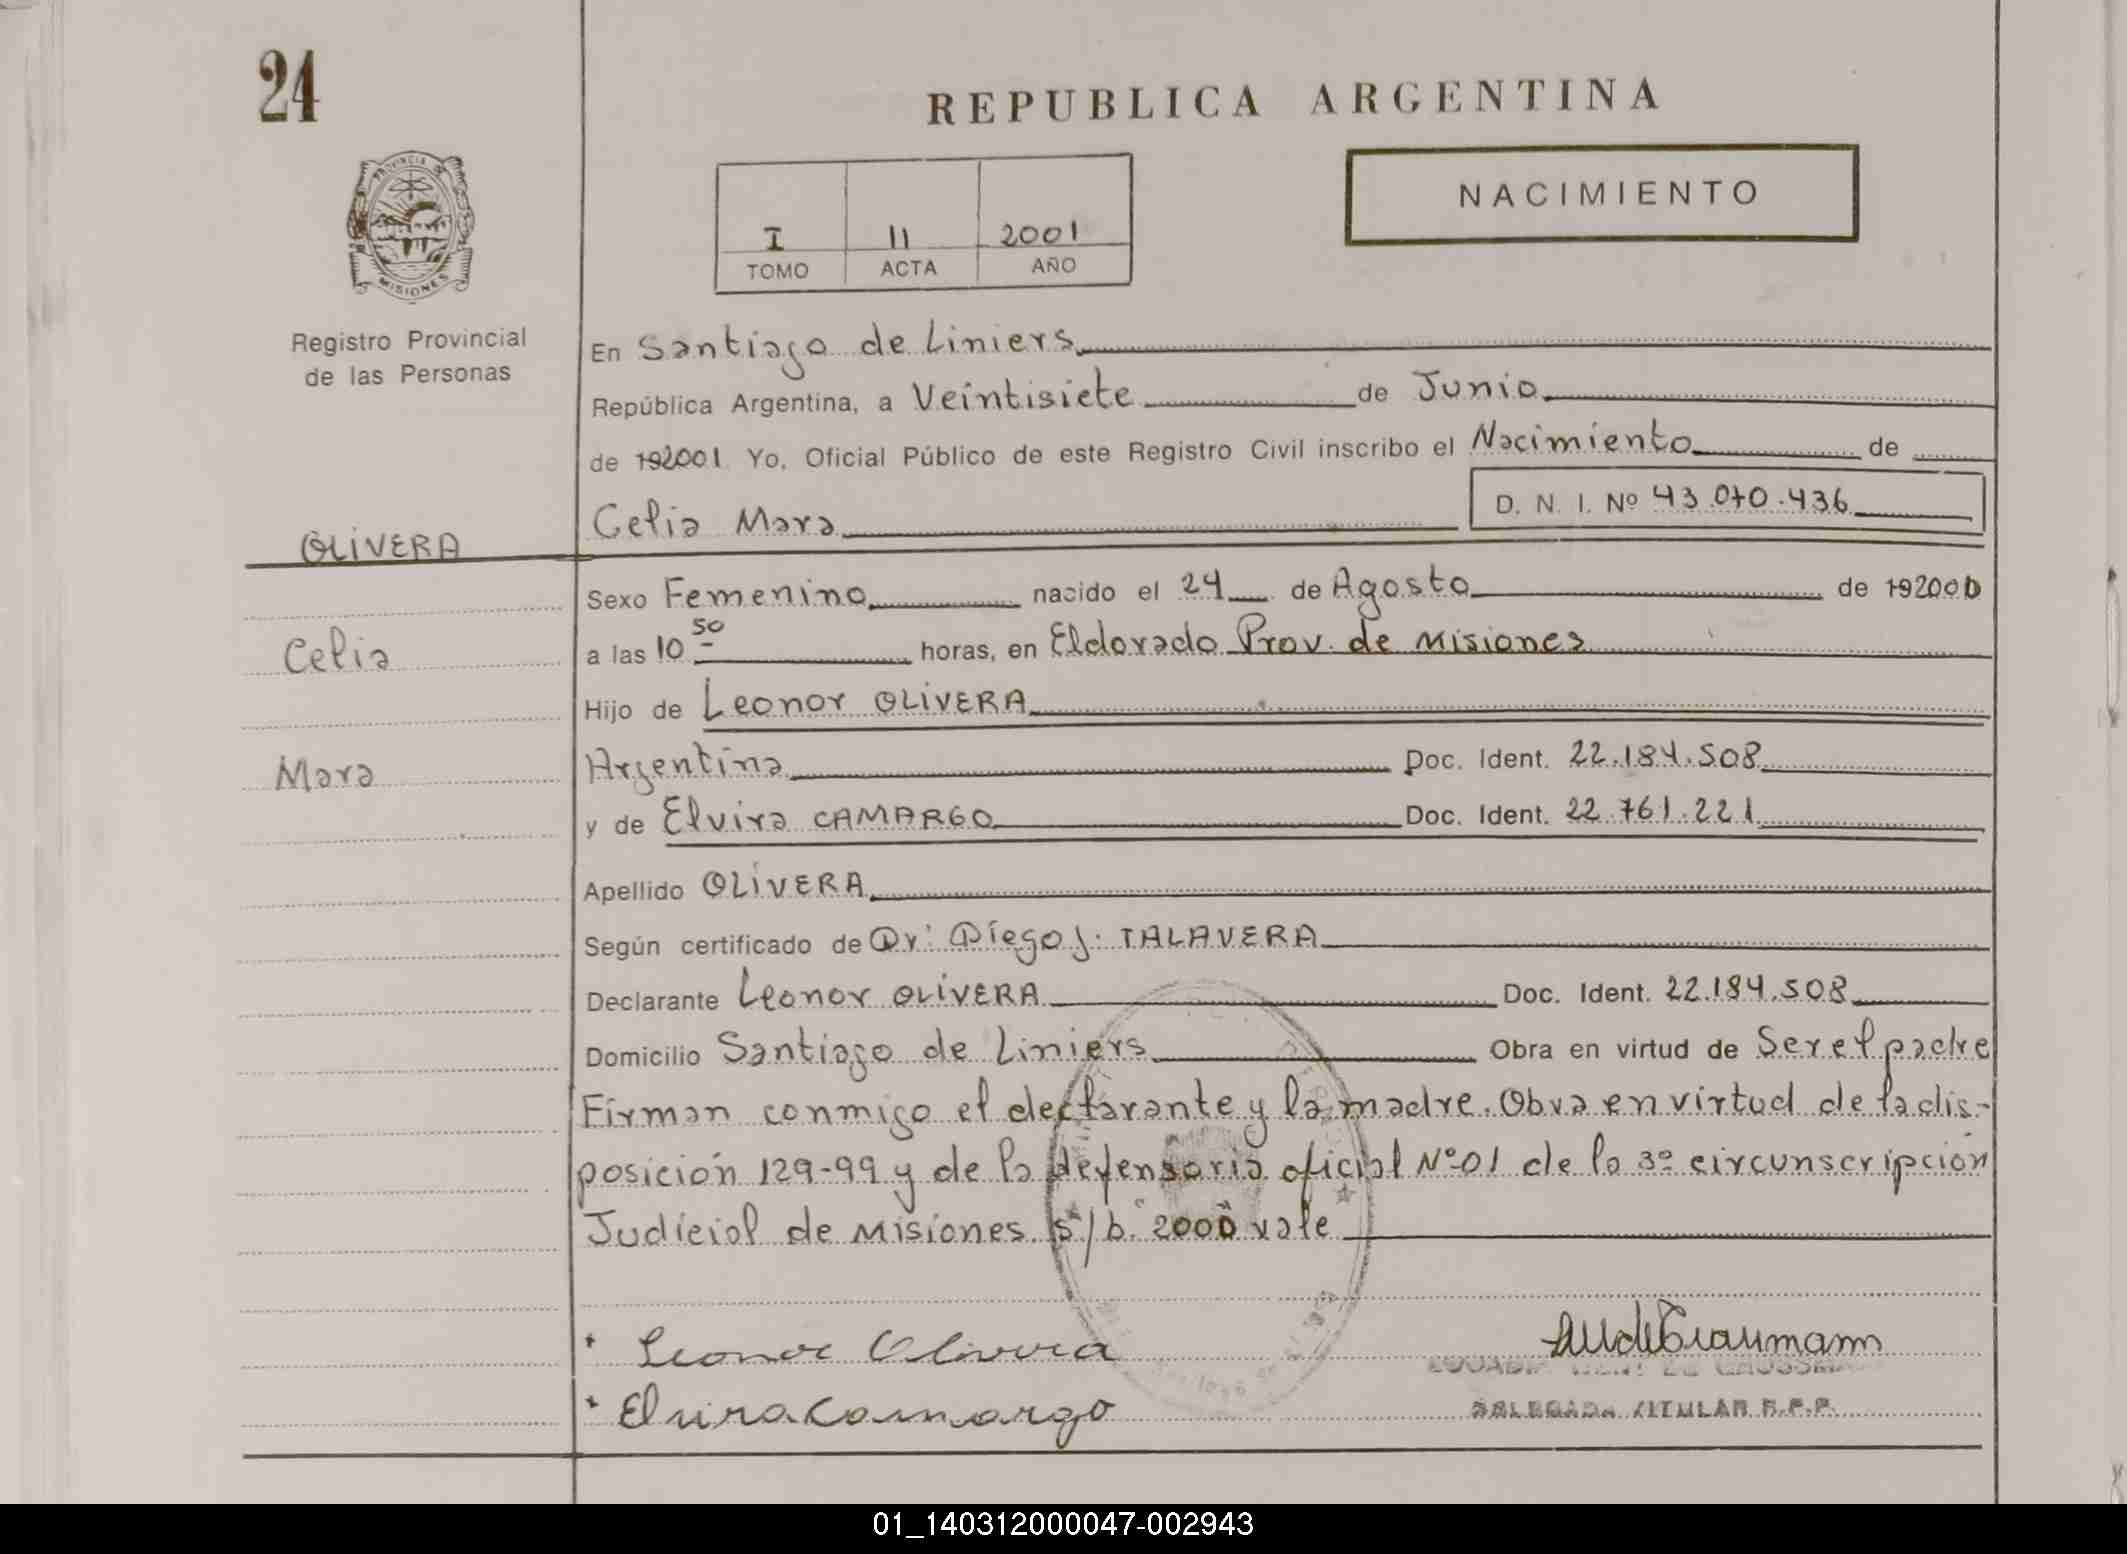 24
REPUBLICA ARGENTINA
PROVINCIA DE
MISIONES
I 11 2001
TOMO ACTA AÑO
NACIMIENTO
Registro Provincial
de las Personas
En Santiago de Liniers
República Argentina, a Veintisiete de Junio
de 192001 Yo, Oficial Público de este Registro Civil inscribo el Nacimiento de
Celia Mara D. N. I. Nº 43.070.436
OLIVERA
Sexo Femenino nacido el 24 de Agosto de 192000
Celia
a las 10 50 horas, en Eldorado Prov. de Misiones
Hijo de Leonor OLIVERA
Mara
Argentina Doc. Ident. 22.184.508
y de Elvira CAMARGO Doc. Ident. 22.761.221
Apellido OLIVERA
Según certificado de Dr. Diego J. TALAVERA
Declarante Leonor OLIVERA Doc. Ident. 22.184.508
Domicilio Santiago de Liniers Obra en virtud de Ser el padre
Firman conmigo el declarante y la madre. Obra en virtud de la dis-
posición 129-99 y de la defensoria oficial Nº 01 de la 3º circunscripción
Judicial de Misiones. s/b. "2000" vale
Leonor Olivera
Elvira Camargo
TITULAR R.P.P.
01_140312000047-002943